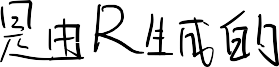 是由R生成的